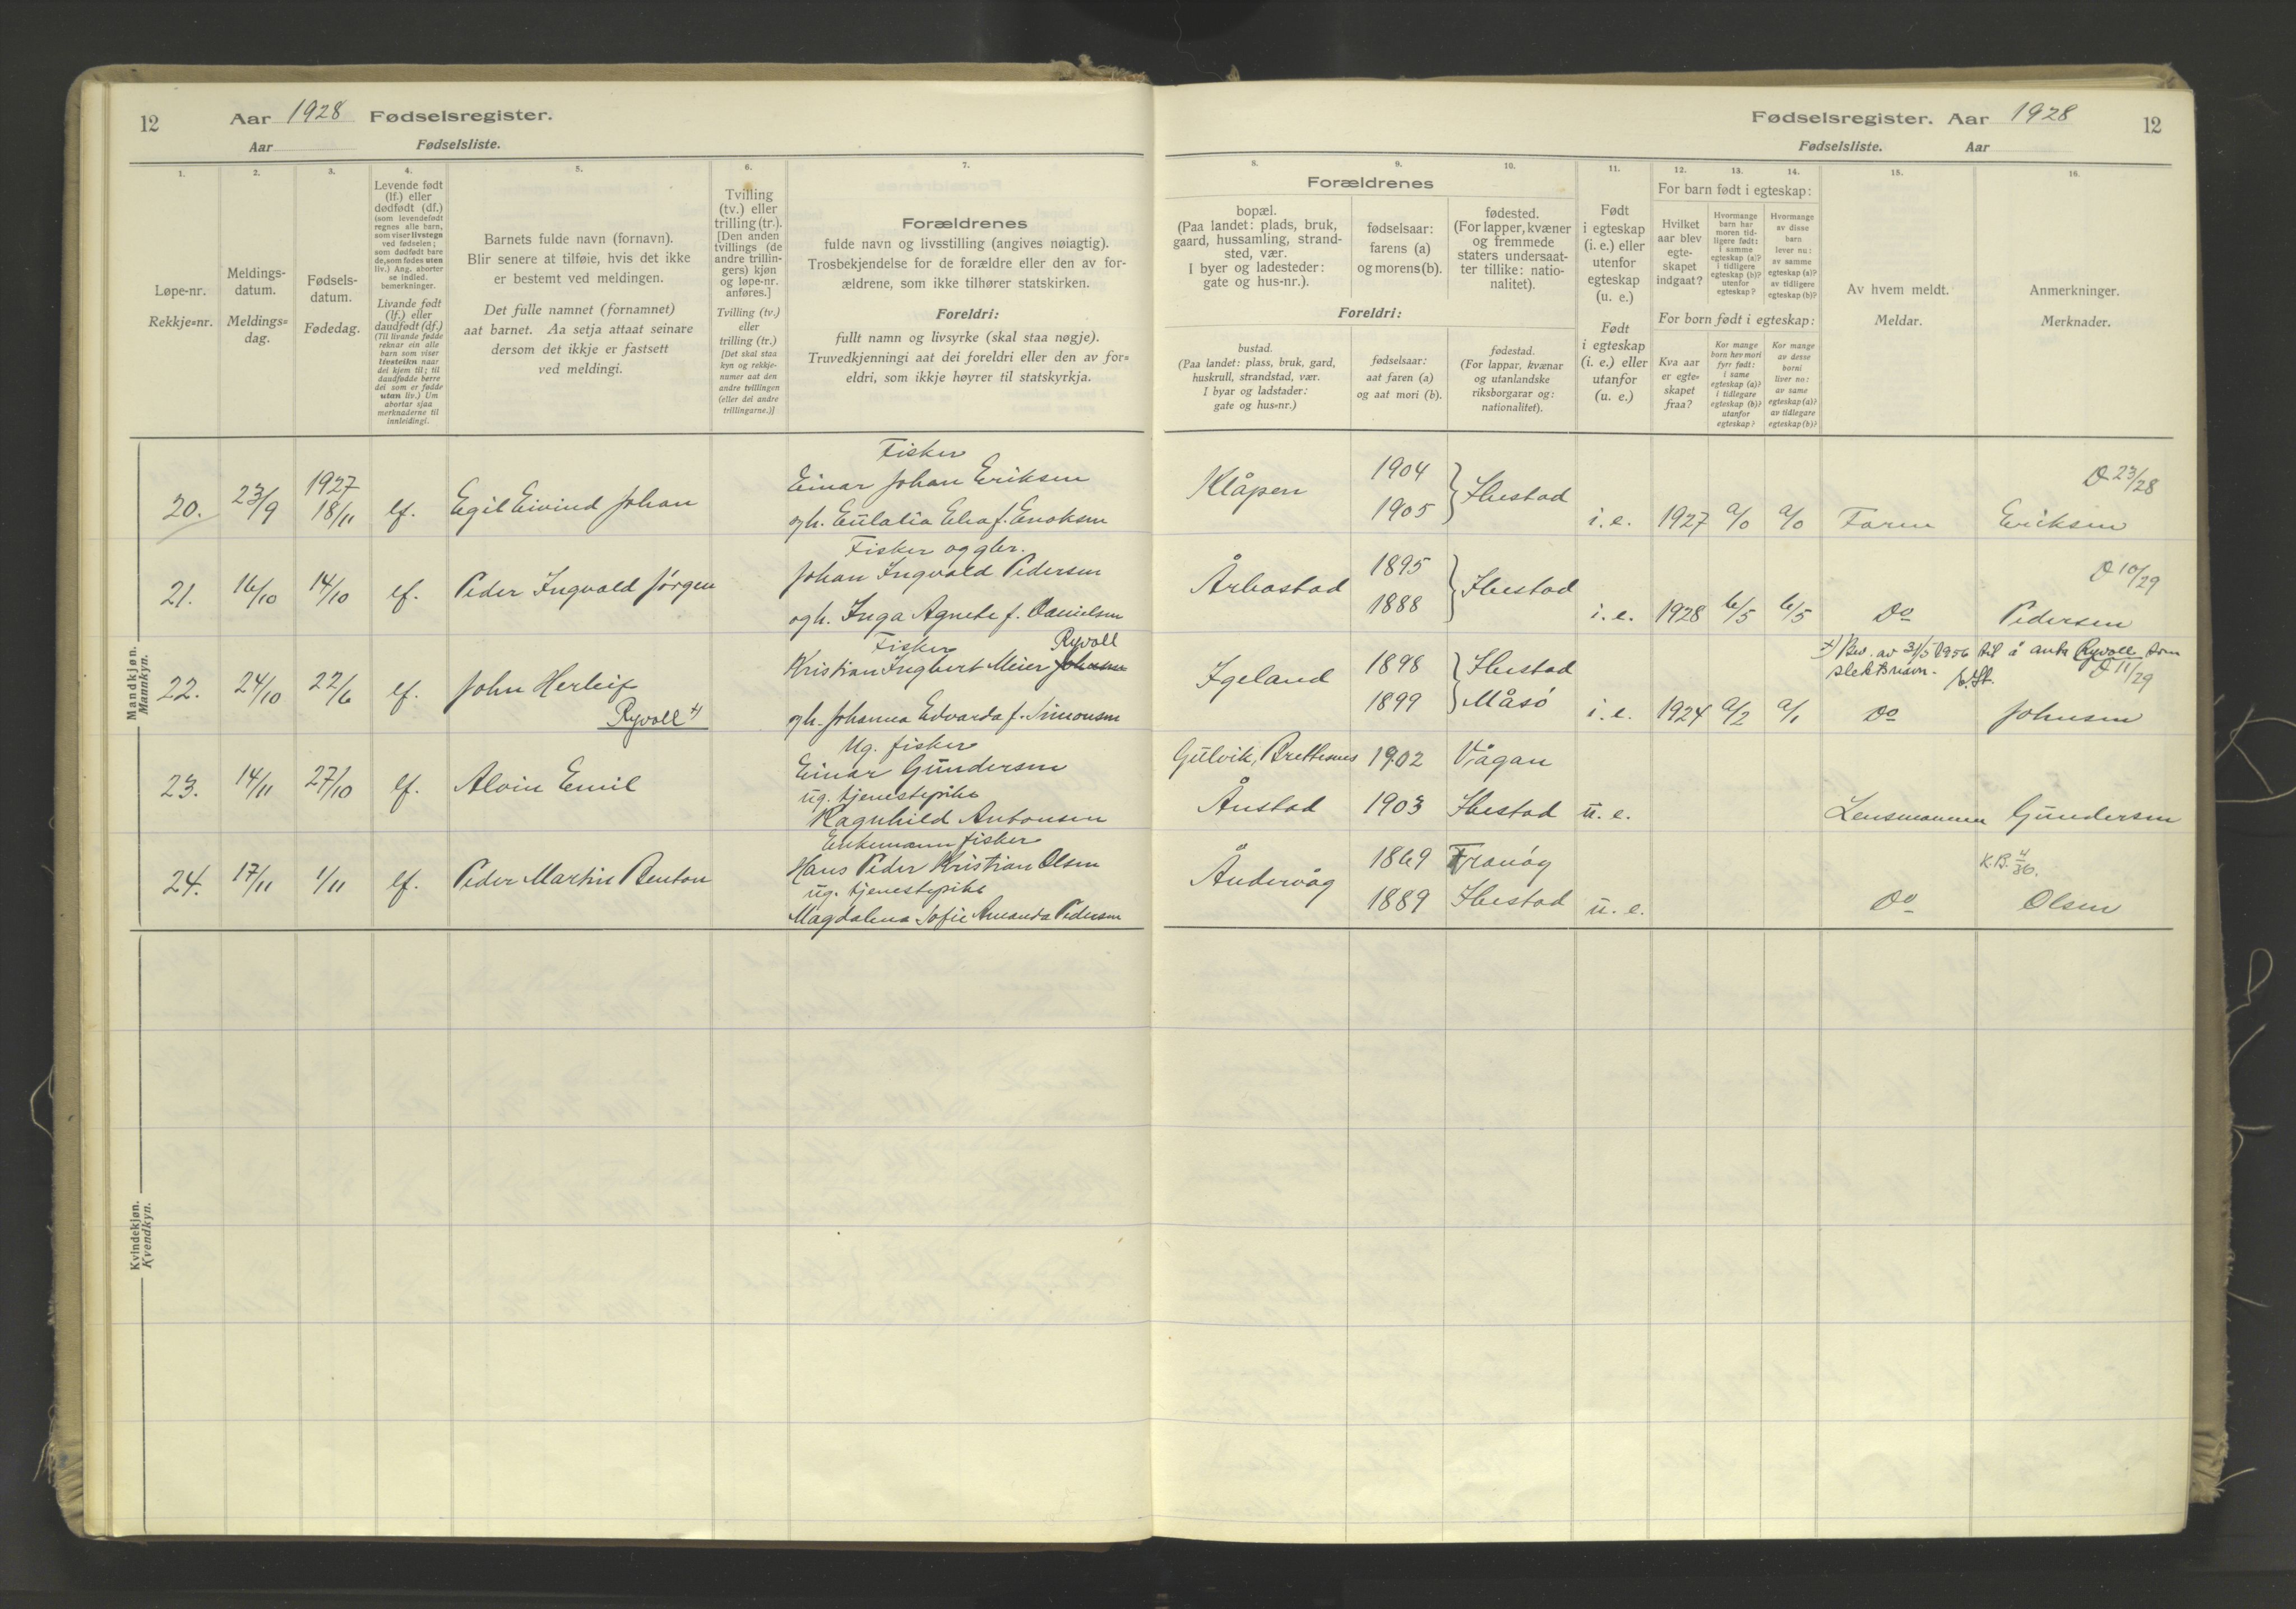 12 Aar 1928 Fødselsregister.
Aar Fødselsliste.
1. 2. 3. 4. 5. 6. 7.
Løpe-nr.
Rekkje=nr.
Meldings-
datum.
Meldings=
dag.
Fødsels-
datum.
Fødedag.
Levende født
(lf.) eller
dødfødt (df.)
(som levendefødt
regnes alle barn,
som viser livstegn
ved fødselen;
som dødfødt bare
de, som fødes uten
liv.) Ang. aborter
se indled.
bemerkninger.
Livande født
(lf.) eller
daudfødt (df.)
(Til livande fødde
reknar ein alle
barn som viser
livsteikn naar
dei kjem til; til
daudfødde berre
dei som er fødde
utan liv.) Um
abortar sjaa
merknaderne til
innleidingi.
Barnets fulde navn (fornavn).
Blir senere at tilføie, hvis det ikke
er bestemt ved meldingen.
Det fulle namnet (fornamnet)
aat barnet. Aa setja attaat seinare
dersom det ikkje er fastsett
ved meldingi.
Tvilling
(tv.) eller
trilling (tr.).
[Den anden
tvillings (de
andre trillin-
gers) kjøn
og løpe-nr.
anføres.]
Tvilling (tv.)
eller
trilling (tr.)
[Det skal staa
kyn og rekkje-
numer aat den
andre tvillingen
(eller dei andre
trillingarne.)]
Forældrenes
fulde navn og livsstilling (angives nøiagtig).
Trosbekjendelse for de forældre eller den av for-
ældrene, som ikke tilhører statskirken.
Foreldri:
fullt namn og livsyrke (skal staa nøgje).
Truvedkjenningi aat dei foreldri eller den av for=
eldri, som ikkje høyrer til statskyrkja.
Mandkjøn.
Mannkyn.
Fisker
20. 23/9 1927 18/11 lf. Egil Eivind Johan Einar Johan Eriksen
ogh. Eulalia Elea f. Enoksen
Fisker og gbr.
21. 16/10 14/10 lf. Peder Ingvald Jørgen Johan Ingvald Pedersen
ogh. Inga Agnete f. Danielsen
Fisker Ryvoll
22. 24/10 22/6 lf. John Herleif Kristian Ingbert Meier Johnsen
Ryvoll +) ogh. Johanna Edvarda f. Simonsen
Ug. fisker
23. 14/11 27/10 lf. Alvin Emil Einar Gundersen
ug. tjenestepike
Ragnhild Antonsen
Enkemann fisker
24. 17/11 1/11 lf. Peder Martin Benton Hans Peder Kristian Olsen
ug. tjenestepike
Magdalena Sofie Amanda Pedersen
Kvindekjøn.
Kvendkyn.
Fødselsregister. Aar 1928 12
Fødselsliste. Aar
8. 9. 10. 11. 12. 13. 14. 15. 16.
Forældrenes
bopæl.
(Paa landet: plads, bruk,
gaard, hussamling, strand-
sted, vær.
I byer og ladesteder:
gate og hus-nr.).
fødselsaar:
farens (a)
og morens (b).
fødested.
(For lapper, kvæner
og fremmede
staters undersaat-
ter tillike: natio-
nalitet).
Foreldri:
bustad.
(Paa landet: plass, bruk, gard,
huskrull, strandstad, vær.
I byar og ladstader:
gate og hus=nr.)
fødselsaar:
aat faren (a)
og aat mori (b).
fødestad.
(For lappar, kvænar
og utanlandske
riksborgarar og:
nationalitet).
Født
i egteskap
(i. e.) eller
utenfor
egteskap
(u. e.)
Født
i egteskap
(i. e.) eller
utanfor
(u. e.)
For barn født i egteskap:
Hvilket
aar blev
egte-
skapet
indgaat?
Hvormange
barn har
moren tid-
ligere født:
i samme
egteskap (a)?
i tidligere
egteskap (b)?
utenfor
egteskap?
Hvormange
av disse
barn
lever nu:
av samme
egteskap (a)?
av tidligere
egteskap (b)?
For born født i egteskap:
Kva aar
er egte=
skapet
fraa?
Kor mange
born hev mori
fyrr født:
i same
egteskap (a)?
i tidlegare
egteskap (b)?
utanfor
egteskap?
Kor mange
av desse
borni
liver no:
av same
egteskap (a)?
av tidlegare
egteskap (b)?
Av hvem meldt.
Meldar.
Anmerkninger.
Merknader.
Klåpen 1904 Ibestad D 23/28
1905 i. e. 1927 a/0 a/0 Faren Eriksen
Årbostad 1895 Ibestad D 10/29
1888 i. e. 1928 b/5 b/5 Do Pedersen
+) Bev. av 31/5 1956 til å anta Ryvoll som
slektsnavn.
Igeland 1898 Ibestad D 11/29
1899 Måsø i. e. 1924 a/2 a/1 Do Johnsen
Gulvik, Brettesnes 1902 Vågan
Ånstad 1903 Ibestad u. e. Lensmannen Gundersen
Åndervåg 1869 Tranøy K.B. 4/36.
1889 Ibestad u. e. Do Olsen